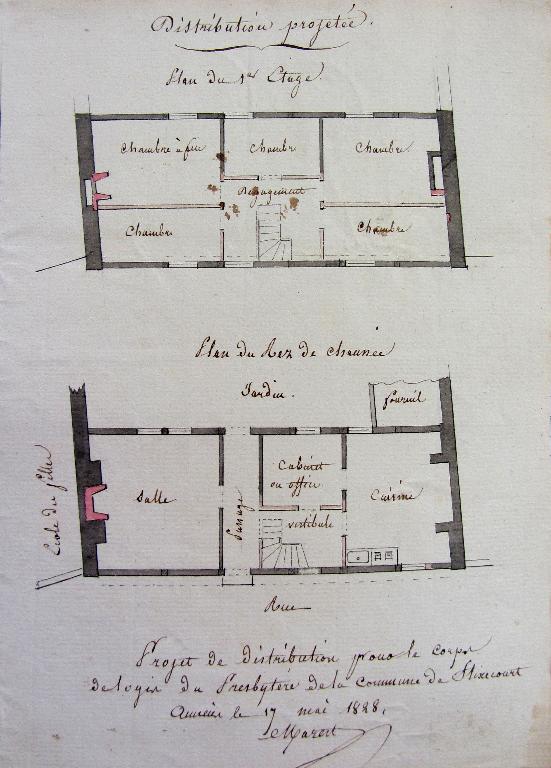 Distribution projetée.
Plan du 1er Etage.
Chambre à feu
Chambre
Chambre
Dégagement
Chambre
Chambre
Plan du Rez de chaussée
Jardin.
fournil
Ecole des filles
Salle
Passage
Cabinet
ou office
vestibule
Cuisine
Rue
Projet de distribution pour le corps
de logis du Presbytère de la Commune de Flixecourt
Amiens le 17 mai 1828.